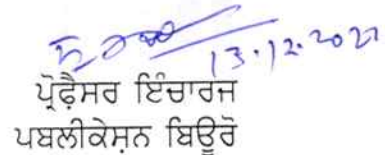 13.12.2021
ਪ੍ਰੋਫ਼ੈਸਰ ਇੰਚਾਰਜ
ਪਬਲੀਕੇਸ਼ਨ ਬਿਊਰੋ